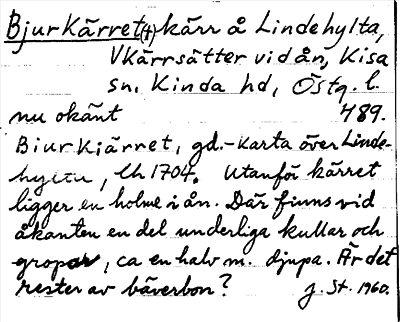 BjurKärret(†) kärr å Lindehylta,
V Kärrsätter vid ån, Kisa
sn. Kinda hd, Östg. l.
nu okänt 489.
Bjurkiärret, gd.-karta över Linde-
hylta, Ch 1704. Utanför kärret
ligger en holme i ån. Där finns vid
åkanten en del underliga kullar och
gropar, ca en halv m. djupa. Är det
rester av bäverbon? J. St. 1960.